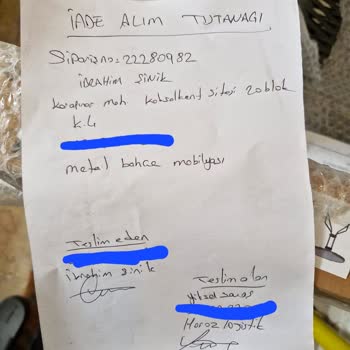 İADE ALIM TUTANAGI
Siparis no: 22280982
İBRAHİM SİNİK
mah sitesi 20 blok
K.4
metal bahçe mobilyası
Teslim eden
ibrahim sinik
Teslim alan
Horoz lojistik